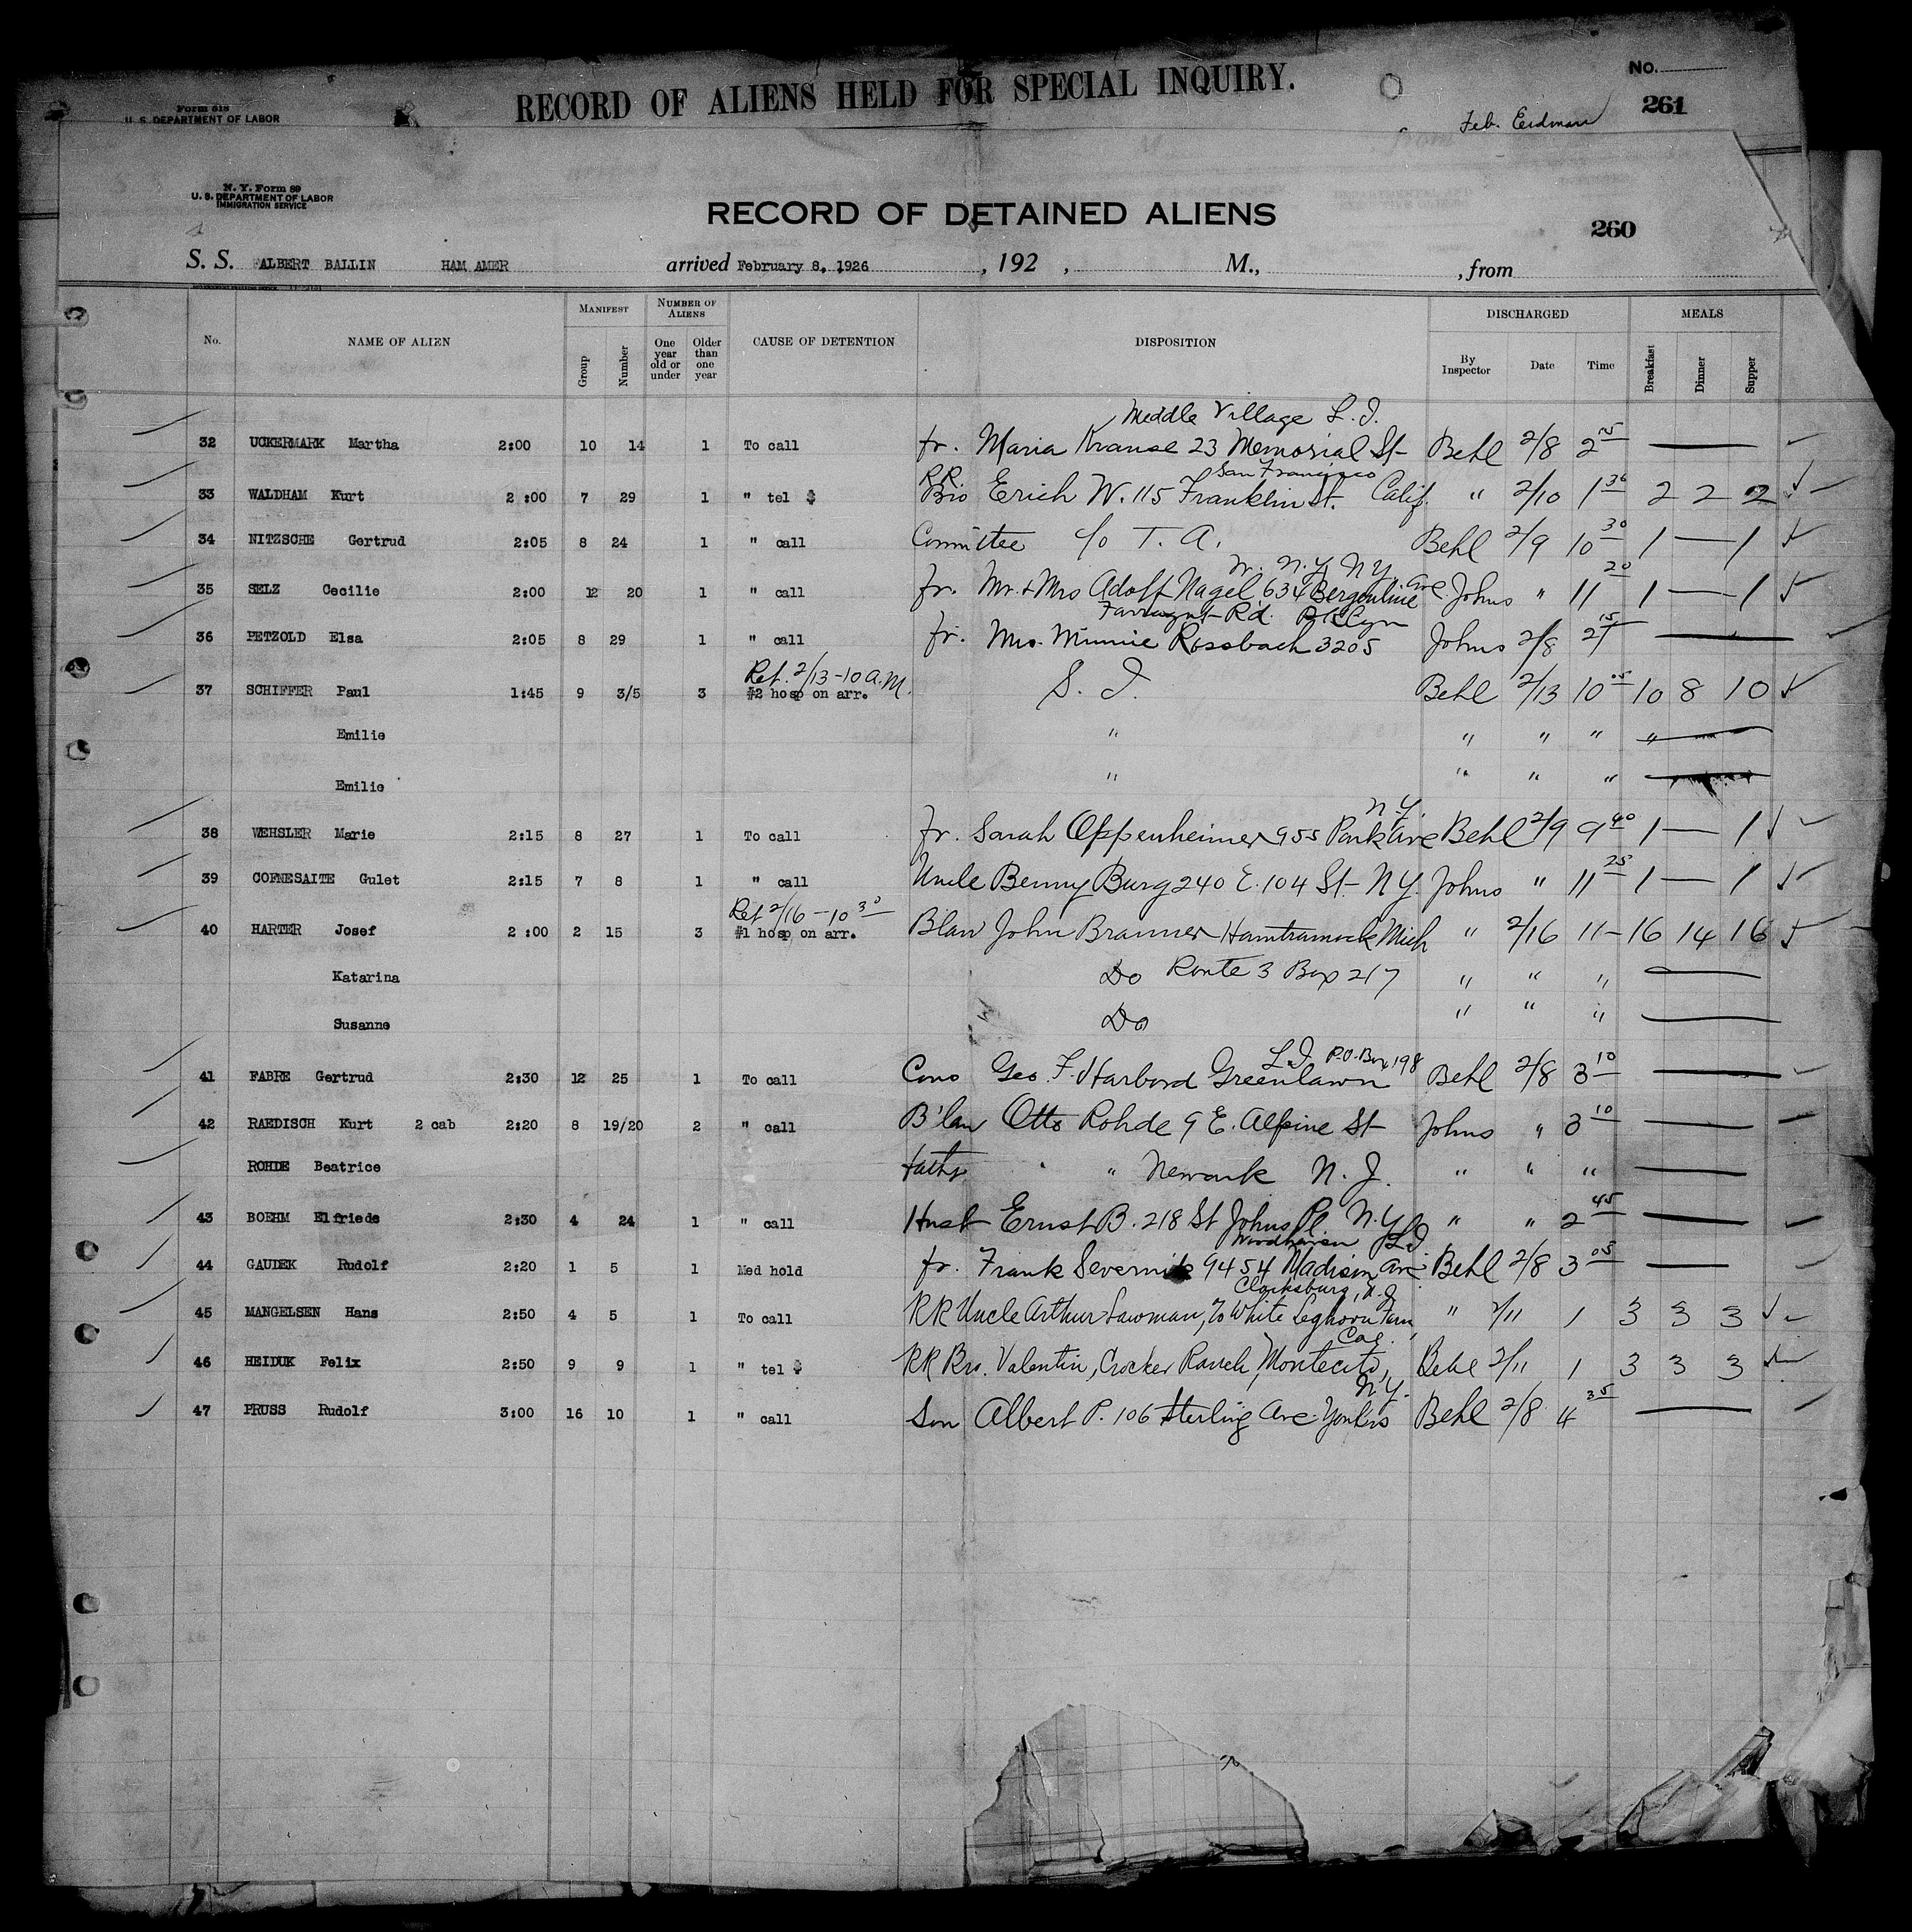 Form 518
U. S. DEPARTMENT OF LABOR
RECORD OF ALIENS HELD FOR SPECIAL INQUIRY.
No.
261
Feb. Erdman
N. Y. Form 89
U. S. DEPARTMENT OF LABOR
IMMIGRATION SERVICE
RECORD OF DETAINED ALIENS
260
S. S. ALBERT BALLIN HAM AMER arrived February 8, 1926 , 192 , M., , from
No. NAME OF ALIEN MANIFEST Group Number NUMBER OF ALIENS One year old or under Older than one year CAUSE OF DETENTION DISPOSITION DISCHARGED By Inspector Date Time MEALS Breakfast Dinner Supper
Middle Village L.I.
32 UCKERMARK Martha 2:00 10 14 1 To call fr. Maria Krause 23 Memorial St Behl 2/8 2
RR San Francisco
33 WALDHAM Kurt 2 :00 7 29 1 " tel $ Bro Erich W. 115 Franklin St. Calif. " 2/10 1 30 2 2 2
34 NITZSCHE Gertrud 2:05 8 24 1 " call Committee c/o T. A. Behl 2/9 10 30 1 — 1
W. N.Y. N.Y.
35 SELZ Cecilie 2:00 12 20 1 " call fr. Mr. + Mrs Adolf Nagel 634 Bergenline Ave. Johns " 11 20 1 — 1
Farragut Rd. Bklyn
36 PETZOLD Elsa 2:05 8 29 1 " call fr. Mrs. Minnie Rossbach 3205 Johns 2/8 2 15 —
Ret. 2/13 - 10 A.M.
37 SCHIFFER Paul 1:45 9 3/5 3 #2 hosp on arr. S. I. Behl 2/13 10 05 10 8 10
Emilie " " " " "
Emilie " " " "
N.Y.
38 WEHSLER Marie 2:15 8 27 1 To call fr. Sarah Oppenheimer 955 Park Ave Behl 2/9 9 40 1 — 1
39 COFNESAITE Gulet 2:15 7 8 1 " call Uncle Benny Burg 240 E. 104 St N.Y. Johns " 11 25 1 — 1
Ret 2/16 - 10 30
40 HARTER Josef 2 :00 2 15 3 #1 hosp on arr. Blaw John Branner Hamtramck Mich " 2/16 11 — 16 14 16
Katarina Do Route 3 Box 217 " " " —
Susanne Do " " " —
L.I. P.O. Box 198
41 FABRE Gertrud 2:30 12 25 1 To call Cons Geo. F. Harbord Greenlawn Behl 2/8 3 10 —
42 RAEDISCH Kurt 2 cab 2:20 8 19/20 2 " call B'law Otto Rohde 9 E. Alpine St Johns " 3 10 —
ROHDE Beatrice " " Newark N. J. " " " —
43 BOEHM Elfriede 2:30 4 24 1 " call Husb Ernst B. 218 St Johns Pl N.Y. " " 2 45 —
Woodhaven L.I.
44 GAUDEK Rudolf 2:20 1 5 1 Med hold fr. Frank 9454 Madison Ave Behl 2/8 3 05 —
Clarksburg, N.J.
45 MANGELSEN Hans 2:50 4 5 1 To call RR Uncle Arthur Lawman, % White Leghorn Farm " 2/11 1 3 3 3
Cal.
46 HEIDUK Felix 2:50 9 9 1 " tel $ RR Bro. Valentin, Crocker Ranch, Montecito, Behl 2/11 1 3 3 3
N.Y.
47 PRUSS Rudolf 3:00 16 10 1 " call Son Albert P. 106 Sterling Ave Yonkers Behl 2/8 4 35 —